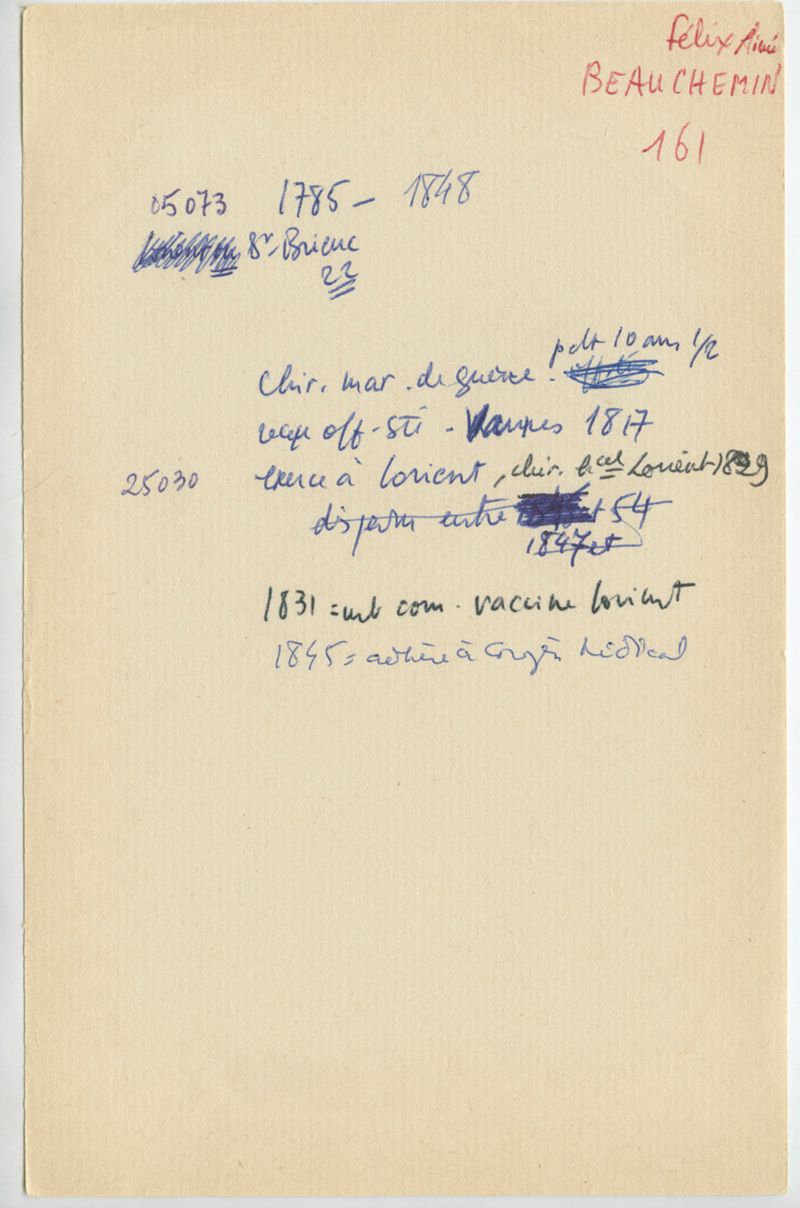 Félix Aimé
BEAUCHEMIN
161
05073 1785 – 1848
St-Brieuc
22
pdt 10 ans 1/2
chir. mar. de guerre.
reçu off. sté - Vannes 1817
25030 exerce à Lorient, chir. hal Lorient 1829
disparu entre et 54
1847 et
1831 = mb com. vaccine Lorient
1845 = adhère à Congrès Médical